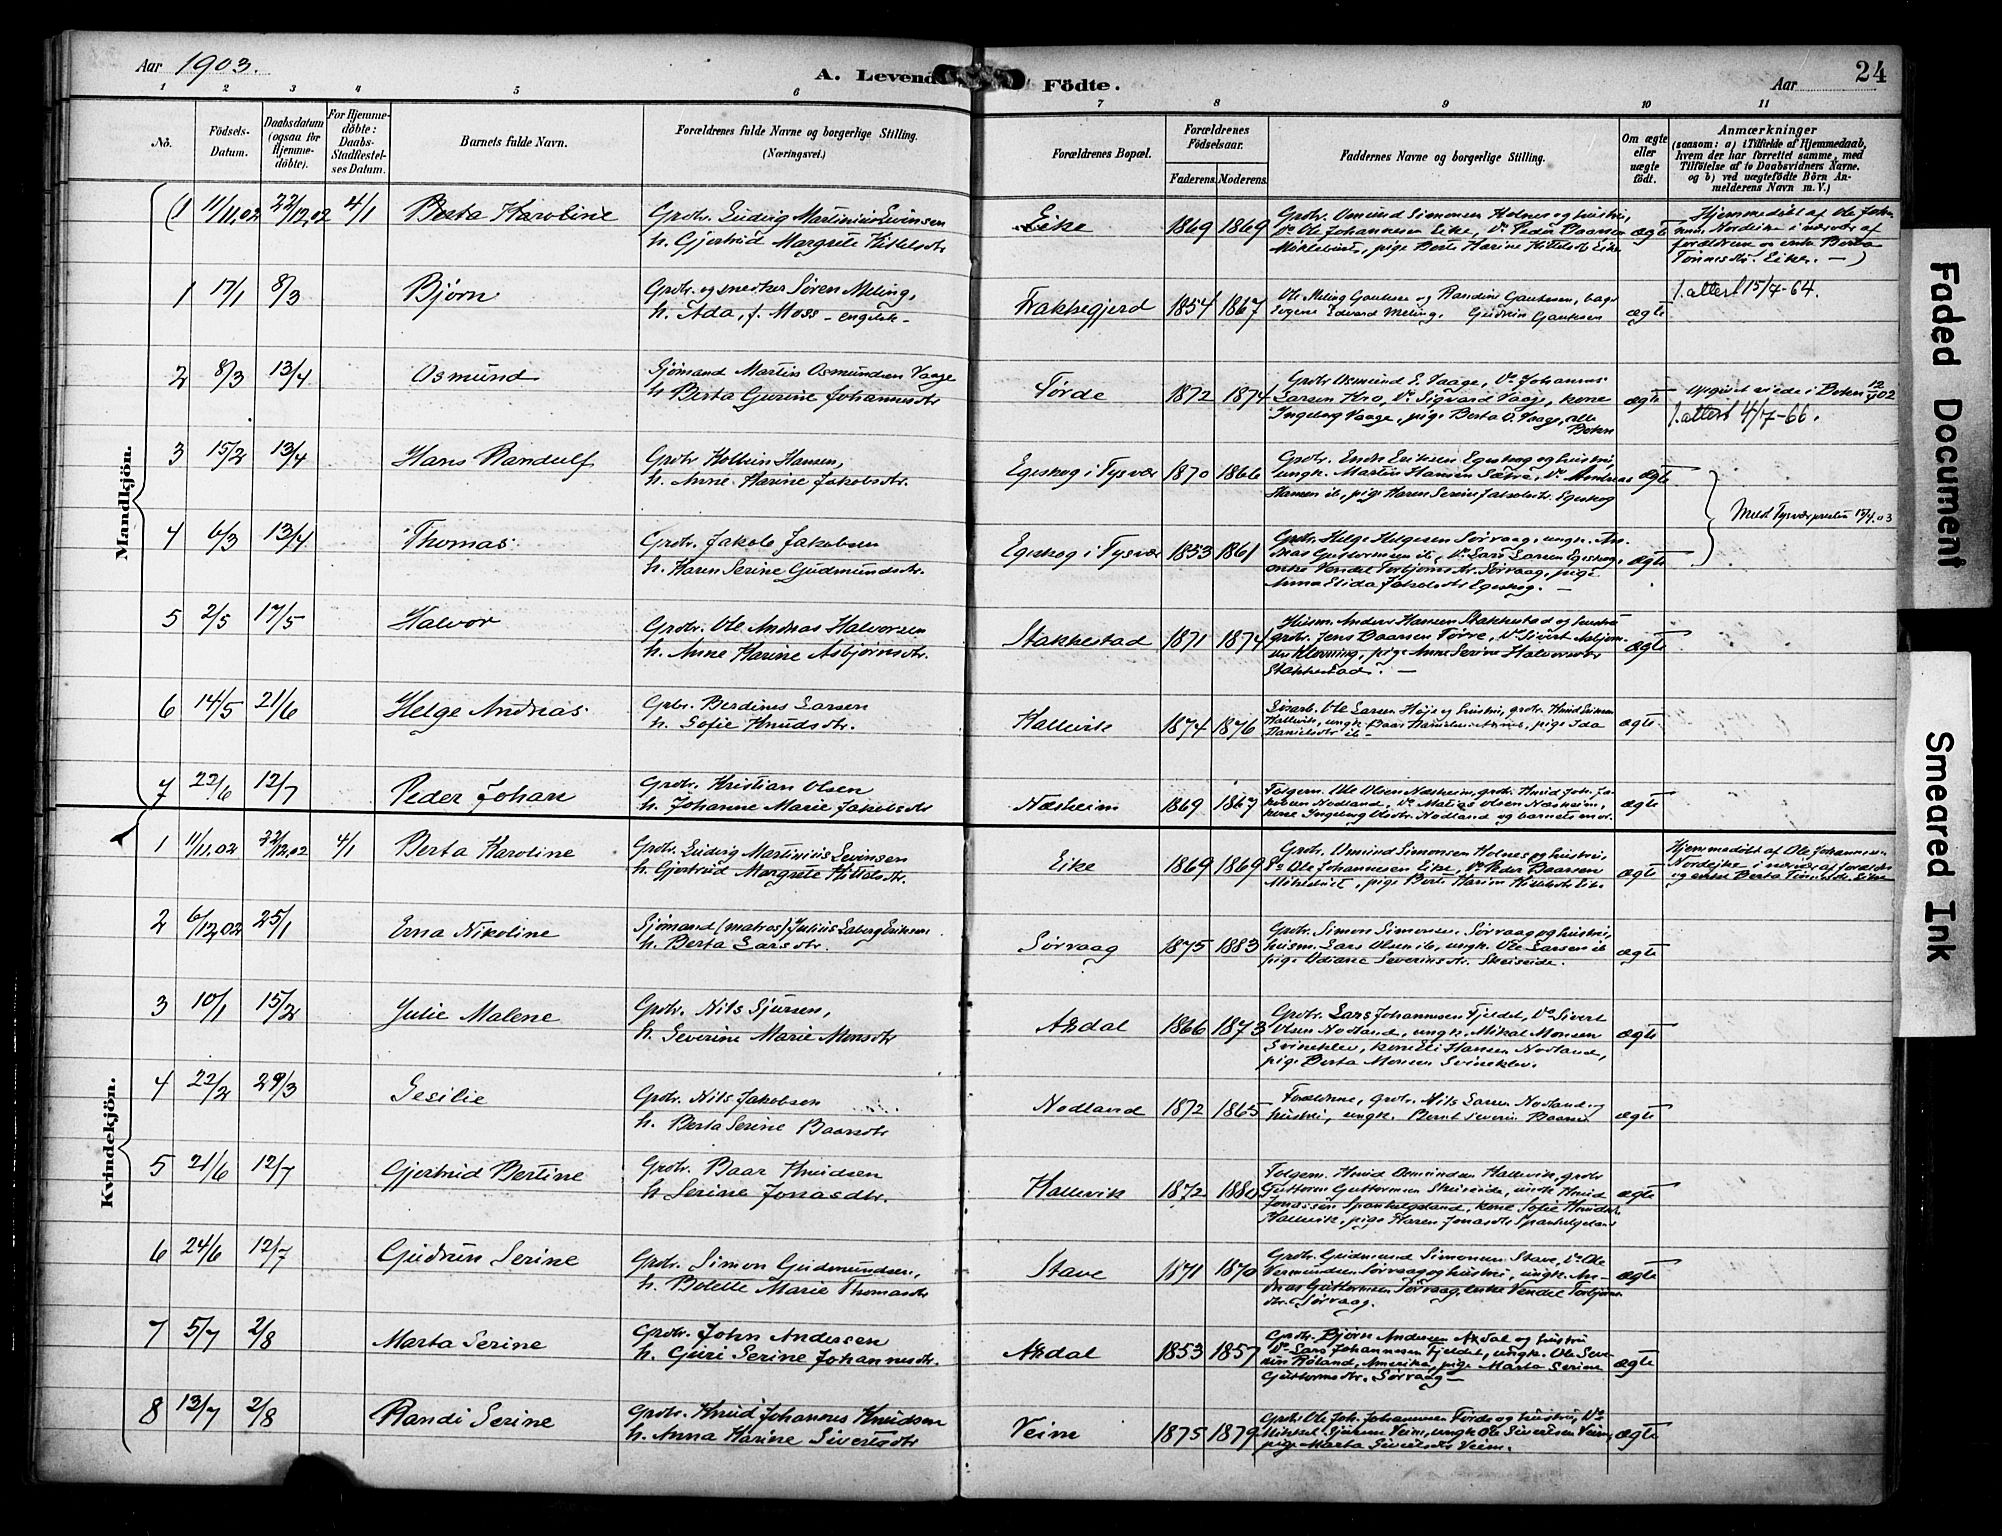 Aar 1903.
A. Levende Födte.
Aar
24
1 2 3 4 5 6 7 8 9 10 11
No.
Födsels-Datum.
Daabsdatum (ogsaa for Hjemme-döbte).
For Hjemme-döbte: Daabs-Stadfæstel-ses Datum.
Barnets fulde Navn.
Forældrenes fulde Navne og borgerlige Stilling. (Næringsvei.)
Forældrenes Bopæl.
Forældrenes Födselsaar.
Faderens. Moderens.
Faddernes Navne og borgerlige Stilling.
Om ægte eller uægte födt.
Anmærkninger (saasom: a) i Tilfælde af Hjemmedaab, hvem der har forrettet samme, med Tilföielse af to Daabsvidners Navne. og b) ved uægtefödte Börn An-melderens Navn m. V.)
Mandkjön.
(1 11/11.02 22/12.02 4/1 Berta Karoline
Grdbr. Ludvig Martinius Levinsen
h. Gjertrud Margrete Kittelsdtr
Eike 1869 1869
Grdbr. Osmund Simonsen Holnes og hustru,
Do Ole Johannesen Eike, Do Peder Baarsen
pige Berte Karine Kittelsdtr Eike
ægte
Hjemmedöbt af Ole Johan-
nesen Nordeike i nærvær af
forældrene og enke Berta
Tönnesdtr. Eike. — )
1 17/1 8/3 Björn
Grdbr. og snedker Sören Meling,
h. Ada, f. Moss - engelsk -
Frakkagjerd 1854 1867
Edvard Meling, Gudrun Gautesen
ægte
f. attest 15/7-64.
2 8/3 13/4 Osmund
Sjömand Martin Osmundsen Vaage
h. Berta Gurine Johannesdtr
Förde 1872 1874
Grdbr Osmund E. Vaage, Do Johannes
Larsen Kro, Do Sigvard Vaage, kone
Ingeborg Vaage, pige Berta O. Vaage, alle
Boken
ægte
viede i Boken 12/4 02
f. attest 4/7-66.
3 15/2 13/4 Hans Randulf
Grdbr Kolbein Hansen,
h. Anne Karine Jakobsdtr.
Egeskog i Tysvær 1870 1866
Grdbr. Endre Eriksen Egeskog og hustru,
ungk. Martin Hansen Do Andreas
Hansen ib, pige Karen Serine Jakobsdtr. Egeskog
ægte
4 6/3 13/4 Thomas
Grdbr. Jakob Jakobsen
h. Karen Serine Gudmundsdtr.
Egeskog i Tysvær 1853 1861
Grdbr. Helge Helgesen Sörvaag, ungk. An-
dreas Guttormsen ib, Do Lars Larsen Egeskog,
enke Vendel Torbjörnsdtr. Sörvaag, pige
Anna Elida Jakobsdtr Egeskog. —
ægte
Meld. Tysvær 15/4.03
5 2/5 17/5 Halvor
Grdbr. Ole Andreas Halvorsen
h. Anne Karine Asbjörnsdtr.
Stakkestad 1871 1874
Husm. Anders Hansen Stakkestad og hustru
grdbr. Jens Baarsen Do Sivert Asbjörn-
sen pige Anne Serine Halvorsdtr
Stakkestad. —
ægte
6 14/5 21/6 Helge Andreas
Grbr. Berdines Larsen
h. Sofie Knudsdtr.
Hallevik 1874 1876
Ole Larsen og hustru, grdbr. Knud
Hallevik, ungk. Baar pige Ida
ib —
ægte
7 22/6 12/7 Peder Johan
Grdbr. Kristian Olsen
h. Johanne Marie Jakobsdtr
Næsheim 1869 1867
Folgem. Ole Olsen Næsheim, grdbr. Knud Joh. Ja-
kobsen Nodland, Do Matias Olsen Næsheim,
kone Ingeborg Olsdtr. Nodland og barnets mor.
ægte
Kvindekjön.
1 11/11.02 22/12.02 4/1 Berta Karoline
Grdbr. Ludvig Martinius Levinsen
h. Gjertrud Margrete Kittelsdtr.
Eike 1869 1869
Grdbr. Osmund Simonsen Holnes og hustru,
Do Ole Johannesen Eike, Do Peder Baarsen
pige Berte Karine Kittelsdtr Eike
ægte
Hjemmedöbt af Ole Johannesen
Nordeike i nærvær af forældre
og enke Berta Eike
2 6/12.02 25/1 Erna Nikoline
Sjömand (matros) Julius Eriksen
h. Berta Larsdtr.
Sörvaag 1875 1883
Grdbr. Simon Simonsen Sörvaag og hustru,
husm. Lars Olsen ib, ungk. Ole Larsen ib
pige Odiane Severinsdtr. Skeiseide.
ægte
3 10/1 15/2 Julie Malene
Grdbr. Nils Sjursen,
h. Severine Marie Monsdtr
Aksdal 1866 1873
Grdbr. Lars Johannesen Fjeldet, Do Sivert
Olsen Nodland, ungk. Mikal Monsen
Svineklev, kone Eli Hansen Nodland,
pige Berta Monsen Svineklev.
ægte
4 22/2 29/3 Sesilie
Grdbr. Nils Jakobsen
h. Berta Serine Baarsdtr
Nodland 1872 1865
Forældrene, Grdbr. Nils Larsen Nodland og
hustru, ungk. Bernt Severin Baarsen
ægte
5 21/6 12/7 Gjertrud Bertine
Grdbr. Baar Knudsen
h. Serine Jonasdtr.
Hallevik 1872 1880
Folgem. Knud Osmundsen Hallevik, grdbr
Guttorm Guttormsen Skeiseide, ungk Knud
Jonassen Spankelgeland, kone Sofie Knudsdtr.
Hallevik, pige Karen Jonasdtr Spankelgeland
ægte
6 24/6 12/7 Gudrun Serine
Grdbr. Simon Gudmundsen,
h. Bolette Marie Thomasdtr
Stave 1871 1870
Grdbr. Gudmund Simonsen Stave, Do Ole
Vermundsen Sörvaag og hustru, ungk. An-
dreas Guttormsen Sörvaag, enke Vendel Torbjörns-
dtr. Sörvaag.
ægte
7 5/7 2/8 Marta Serine
Grdbr. John Andersen
h. Guri Serine Johannesdtr.
Aksdal 1853 1857
Grdbr. Björn Andersen Aksdal og hustru
Do Lars Johannesen Fjeldet, ungk. Ole Seve-
rin Röland, Amerika, pige Marta Serine
Guttormsdtr. Sörvaag —
ægte
8 13/7 2/8 Randi Serine
Grdbr. Knud Johannes Knudsen
h. Anna Karine Sivertsdtr
Veim 1875 1879
Grdbr. Ole Joh. Johannesen Förde og hustru, Do
Mikkel Sjursen Veim, ungk Ole Sivertsen Veim,
pige Marta Sivertsdtr Veim.
ægte
Faded Document
Smeared Ink